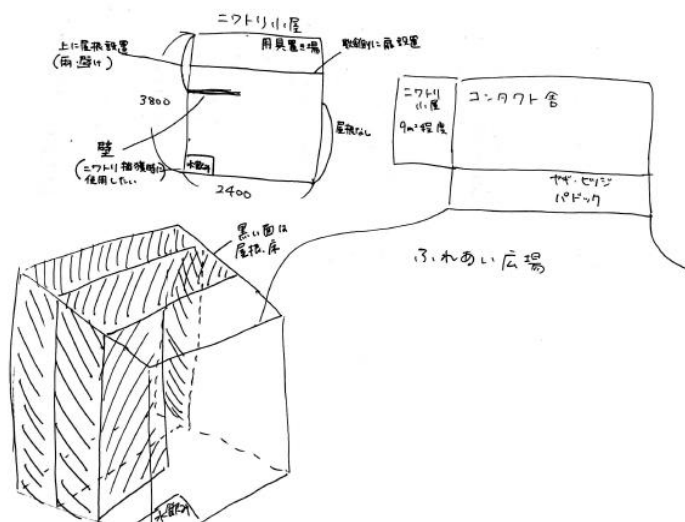 ニワトリ小屋
用具置き場
上に屋根設置
(雨避け)
扉設置
3800
屋根なし
壁
(ニワトリ捕獲時に
使用したい)
水飲み
2400
ニワトリ
小屋
9m²程度
コンタクト舎
ヤギ・ヒツジ
パドック
ふれあい広場
黒い面は
屋根、床
水飲み